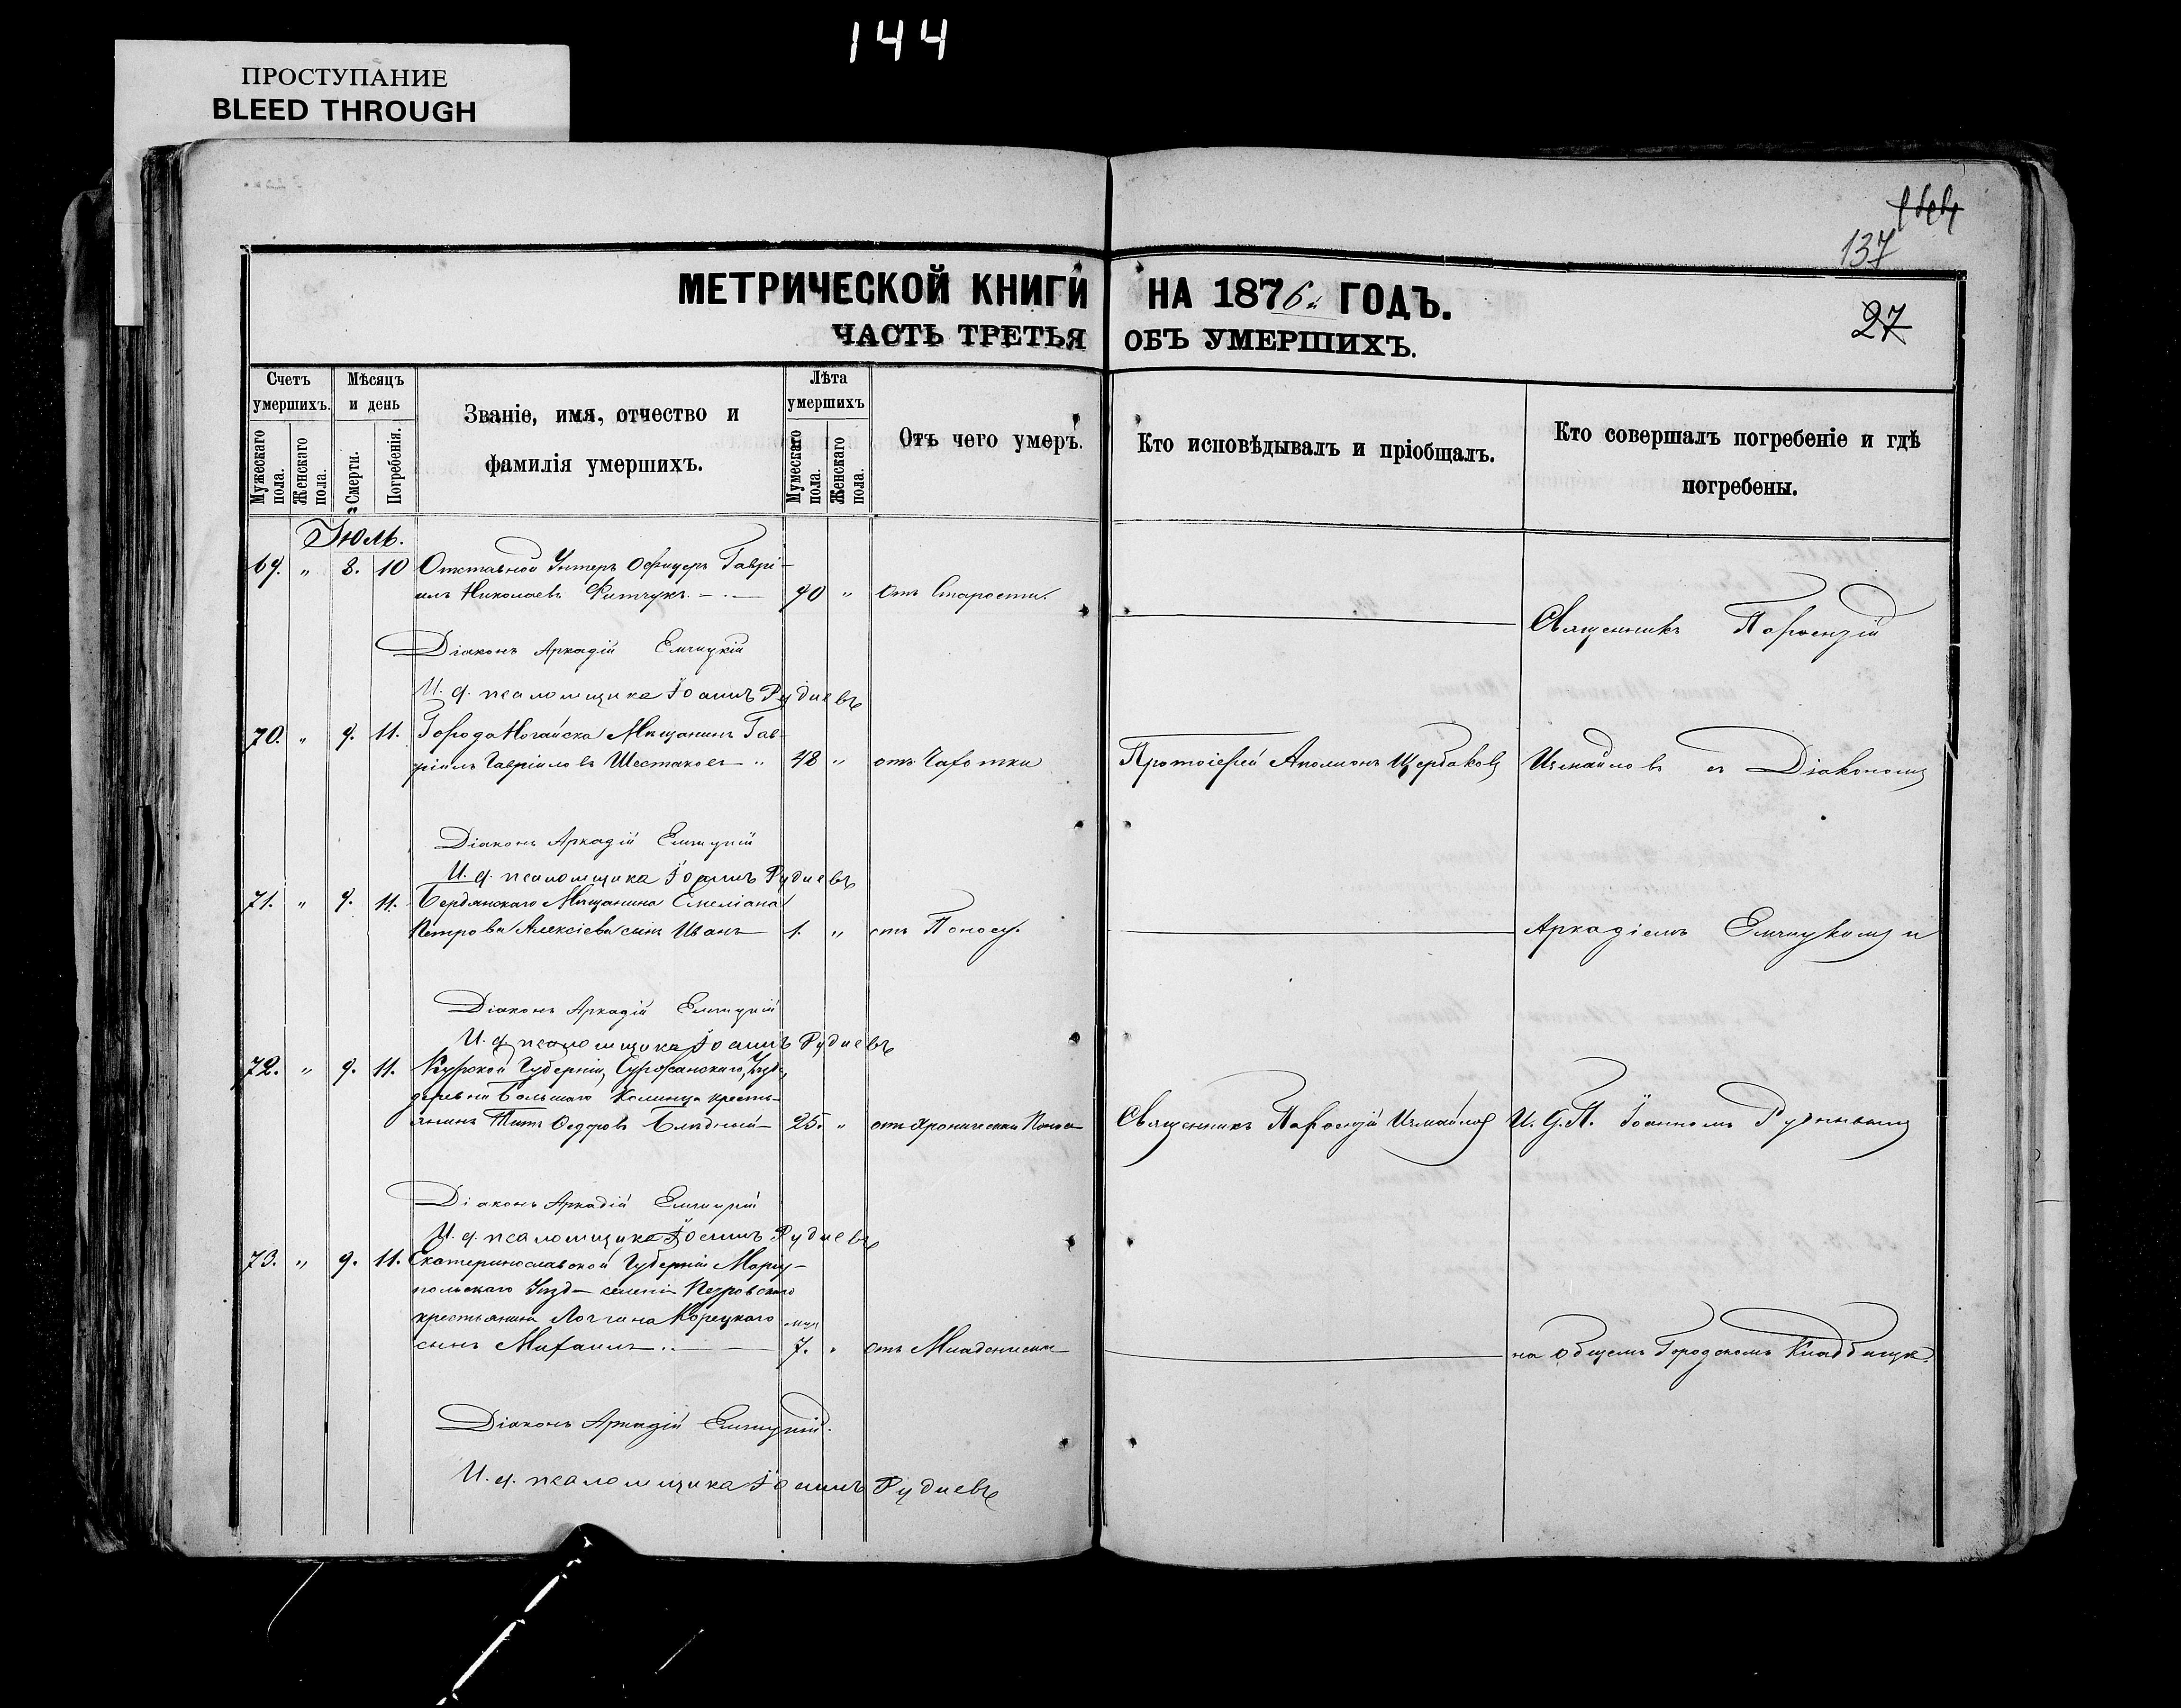 144
ПРОСТУПАНИЕ
BLEED THROUGH
137
27
МЕТРИЧЕСКОЙ КНИГИ НА 1876й ГОДЪ.
ЧАСТЬ ТРЕТЬЯ ОБЪ УМЕРШИХЪ.
Счетъ умершихъ.
Мужескаго пола.
Женскаго пола.
Мѣсяцъ и день
Смерти.
Погребенія.
Званіе, имя, отчество и
фамилія умершихъ.
Лѣта умершихъ
Мужескаго пола.
Женскаго пола.
Отъ чего умеръ.
Кто исповѣдывалъ и пріобщалъ.
Кто совершалъ погребеніе и гдѣ
погребены.
Іюль.
69. " 8. 10 Отставной Унтеръ Офицеръ Гаврі-
илъ Николаевъ 90 " отъ Старости.
Священникъ Парѳеній
Діаконъ Аркадій Емчицкій
И. д. псаломщика Іоаннъ Рудневъ
70. " 9. 11. Города Ногайска Мѣщанинъ Гав-
ріилъ Гавріиловъ Шестаковъ " 48 " отъ Чахотки Протоіерей Аполлонъ Щербаковъ Измайловъ съ Діакономъ
Діаконъ Аркадій Емчицкій
И. д. псаломщика Іоаннъ Рудневъ
71. " 9. 11. Бердянскаго Мѣщанина Емеліана
Петрова Алексѣева сынъ Иванъ 1. " отъ Поносу. Аркадіемъ Емчицкимъ и
Діаконъ Аркадій Емчицкій
И. д. псаломщика Іоаннъ Рудневъ
72. " 9. 11. Курской Губерніи, Суджанскаго, Уѣз.
деревни Большаго крестъ-
янинъ Титъ Ѳедоровъ Блѣдный 25. " отъ Хроническ. Поноса Священникъ Парѳеній Измайловъ И. Д. П. Іоанномъ Рудневымъ
Діаконъ Аркадій Емчицкій
И. д. псаломщика Іоаннъ Рудневъ
73. " 9. 11. Екатеринославской Губерніи Маріу-
польскаго Уѣзда селенія Петровскаго
крестьянина Логгина Корецкаго мѣс.
сынъ Михаилъ. 7. " отъ Младенческ. на общемъ Городскомъ Кладбищѣ.
Діаконъ Аркадій Емчицкій.
И. д. псаломщика Іоаннъ Рудневъ